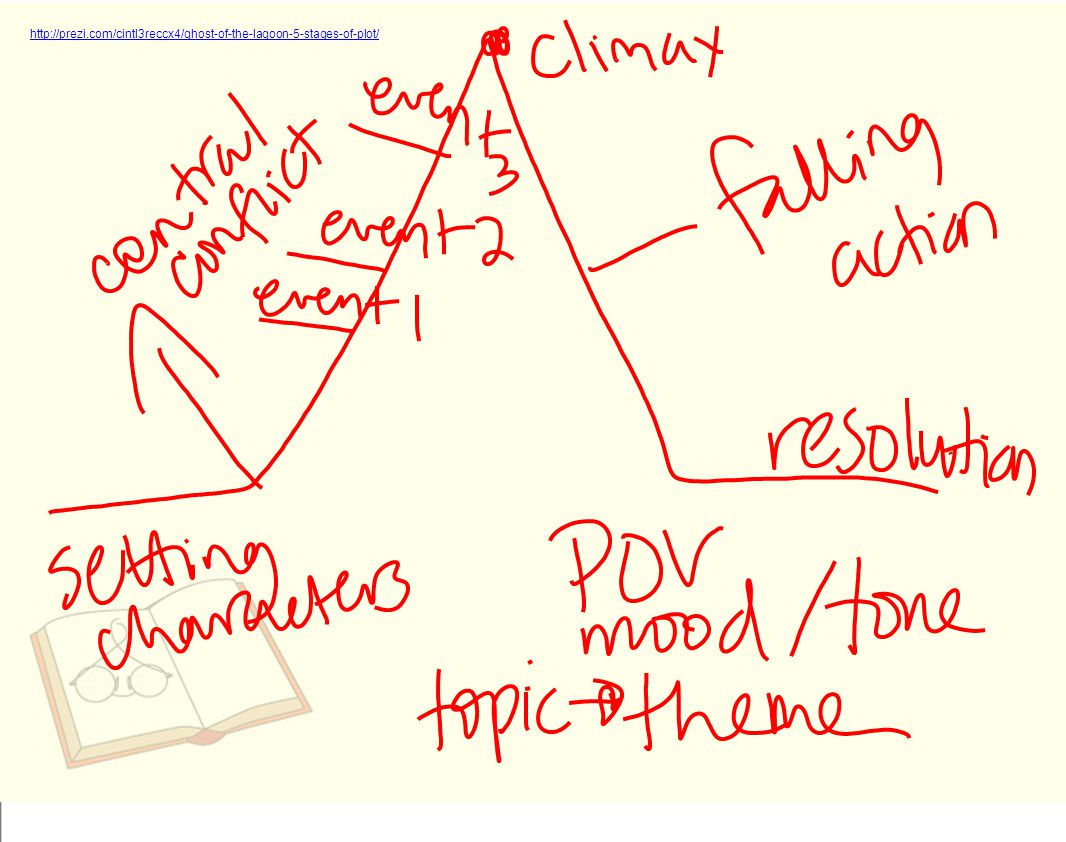 http://prezi.com/cintl3reccx4/ghost-of-the-lagoon-5-stages-of-plot/
climax
event
3
event 2
event 1
central
conflict
falling
action
resolution
setting
characters
POV
mood/tone
topic → theme